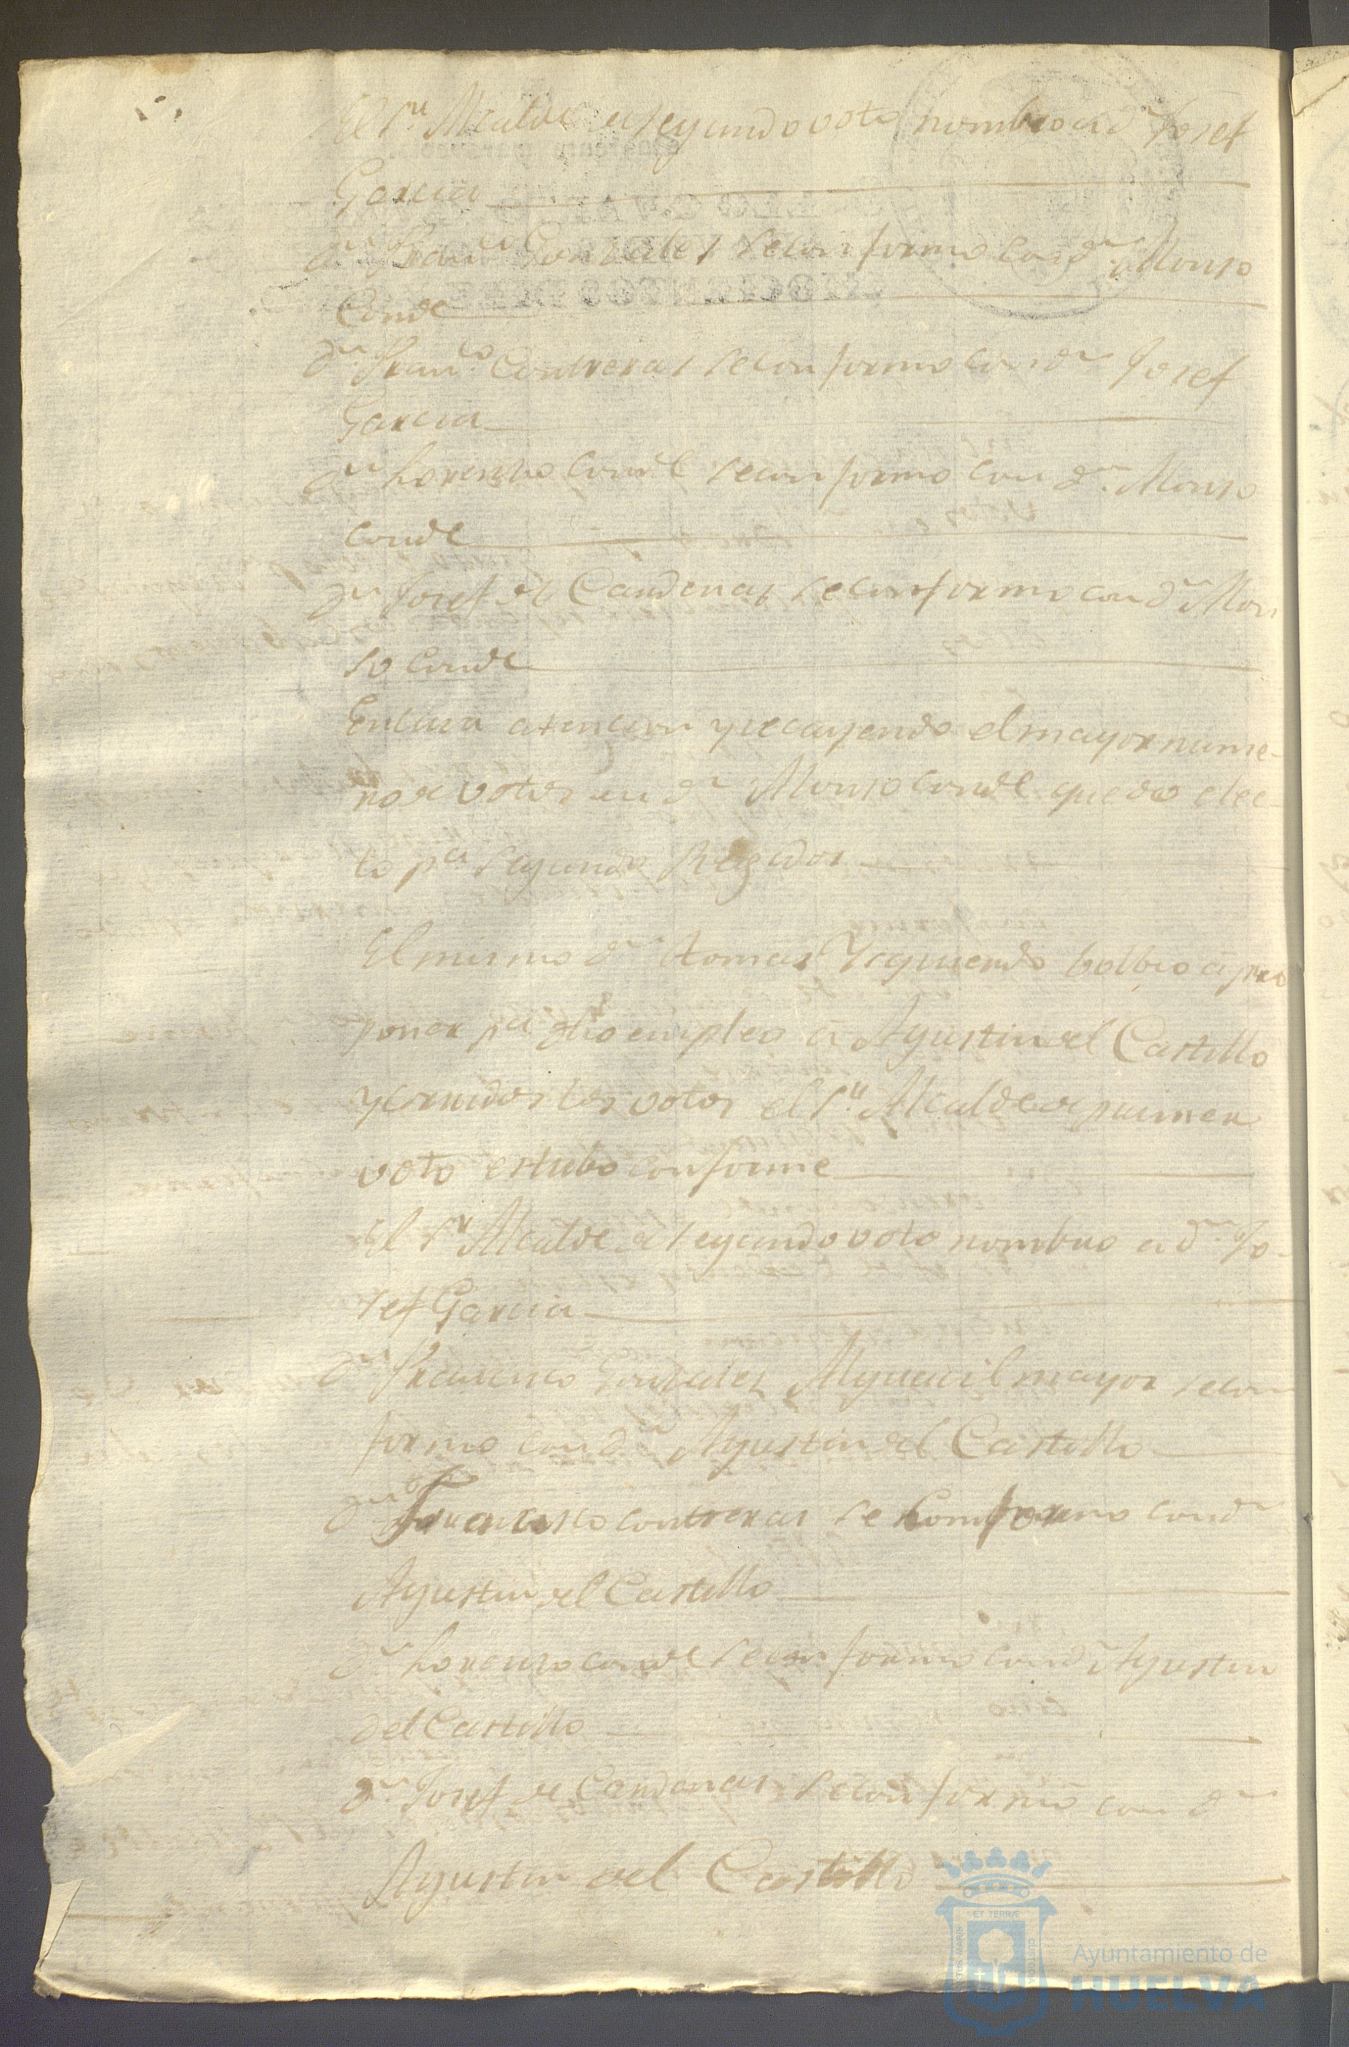 El Sr. Alcalde de segundo voto nombro a dn. Josef
Garcia
dn. Franco. Gonzales se conformo con dn. Alonso
Conde
dn. Franco. Contreras se conformo con dn. Josef
Garcia
dn. Lorenzo Conde se conformo con dn. Alonso
Conde
dn. Josef de Cardenas se conformo con dn. Alon
so Conde
En cuia atencion y recayendo el mayor nume-
ro de votos en dn. Alonso Conde quedo elec-
to pa. segundo Regidor
El mismo dn. tomas Yzquierdo bolbio a pro
poner pa. dho empleo a Agustin del Castillo
y corridos los votos el Sr. Alcalde de primer
voto estubo conforme
El Sr. Alcalde de segundo voto nombro a dn. Jo-
sef Garcia
dn. Francisco Gonzales Alguacil mayor se con
formo con dn. Agustin del Castillo
dn. Francisco contreras se conformo con dn.
Agustin del Castillo
dn. Lorenzo conde se conformo con dn. Agustin
del Castillo
dn. Josef de Cardenas se conformo con dn.
Agustin del Castillo
Ayuntamiento de
HUELVA